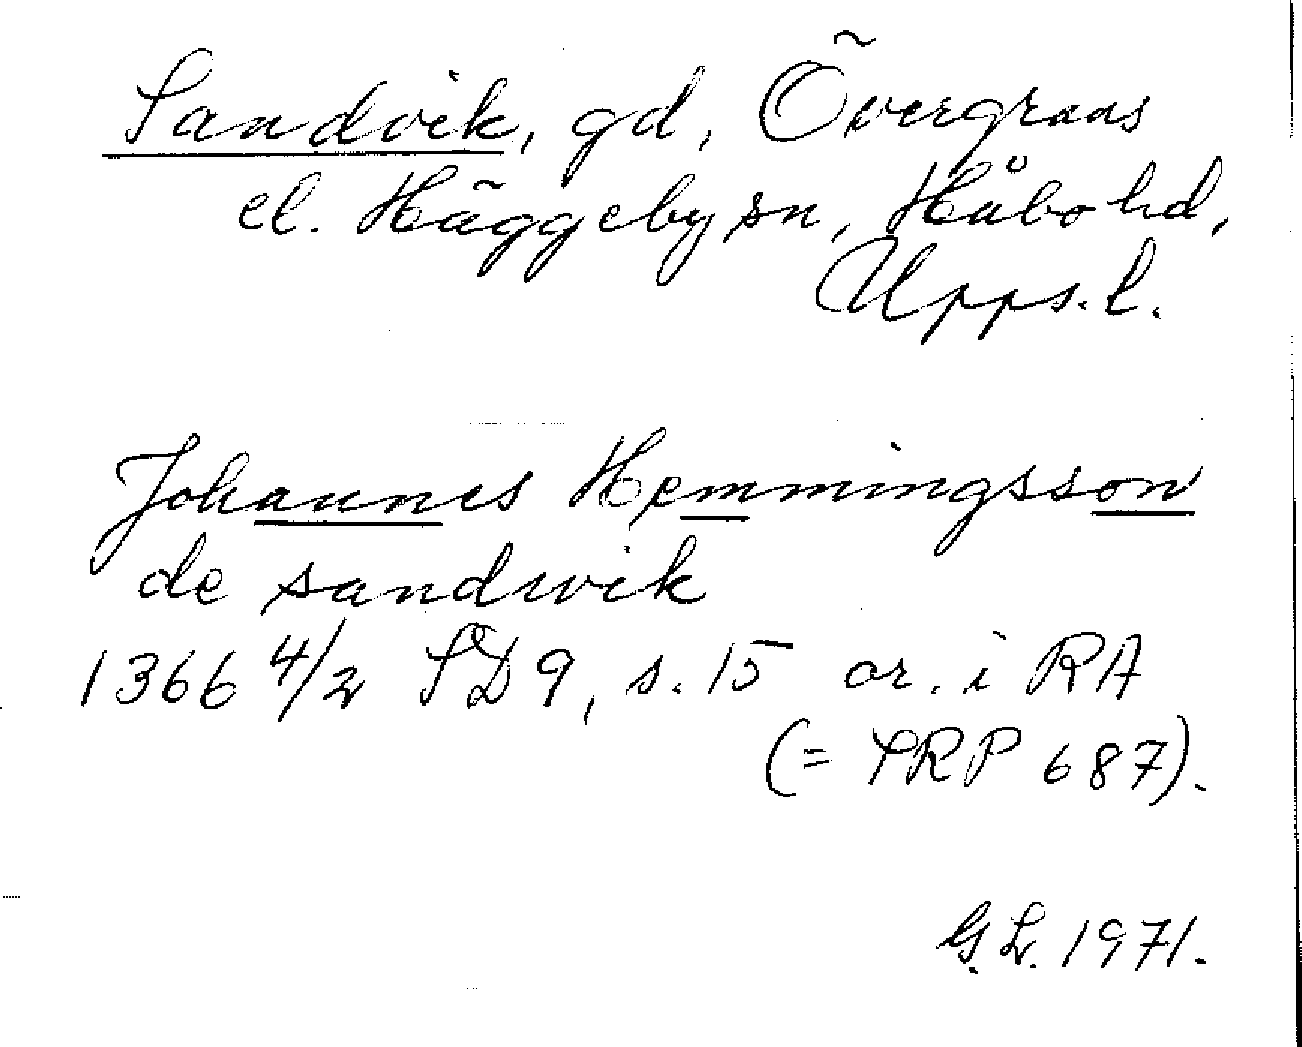 Sandvik, gd, Övergrans
el. Häggeby sn, Håbo hd,
Upps. l.
Johannes Hemmingsson
de sandwik
1366 4/2 SD 9, s. 15 or. i RA
(= SRP 687).
G. L. 1971.